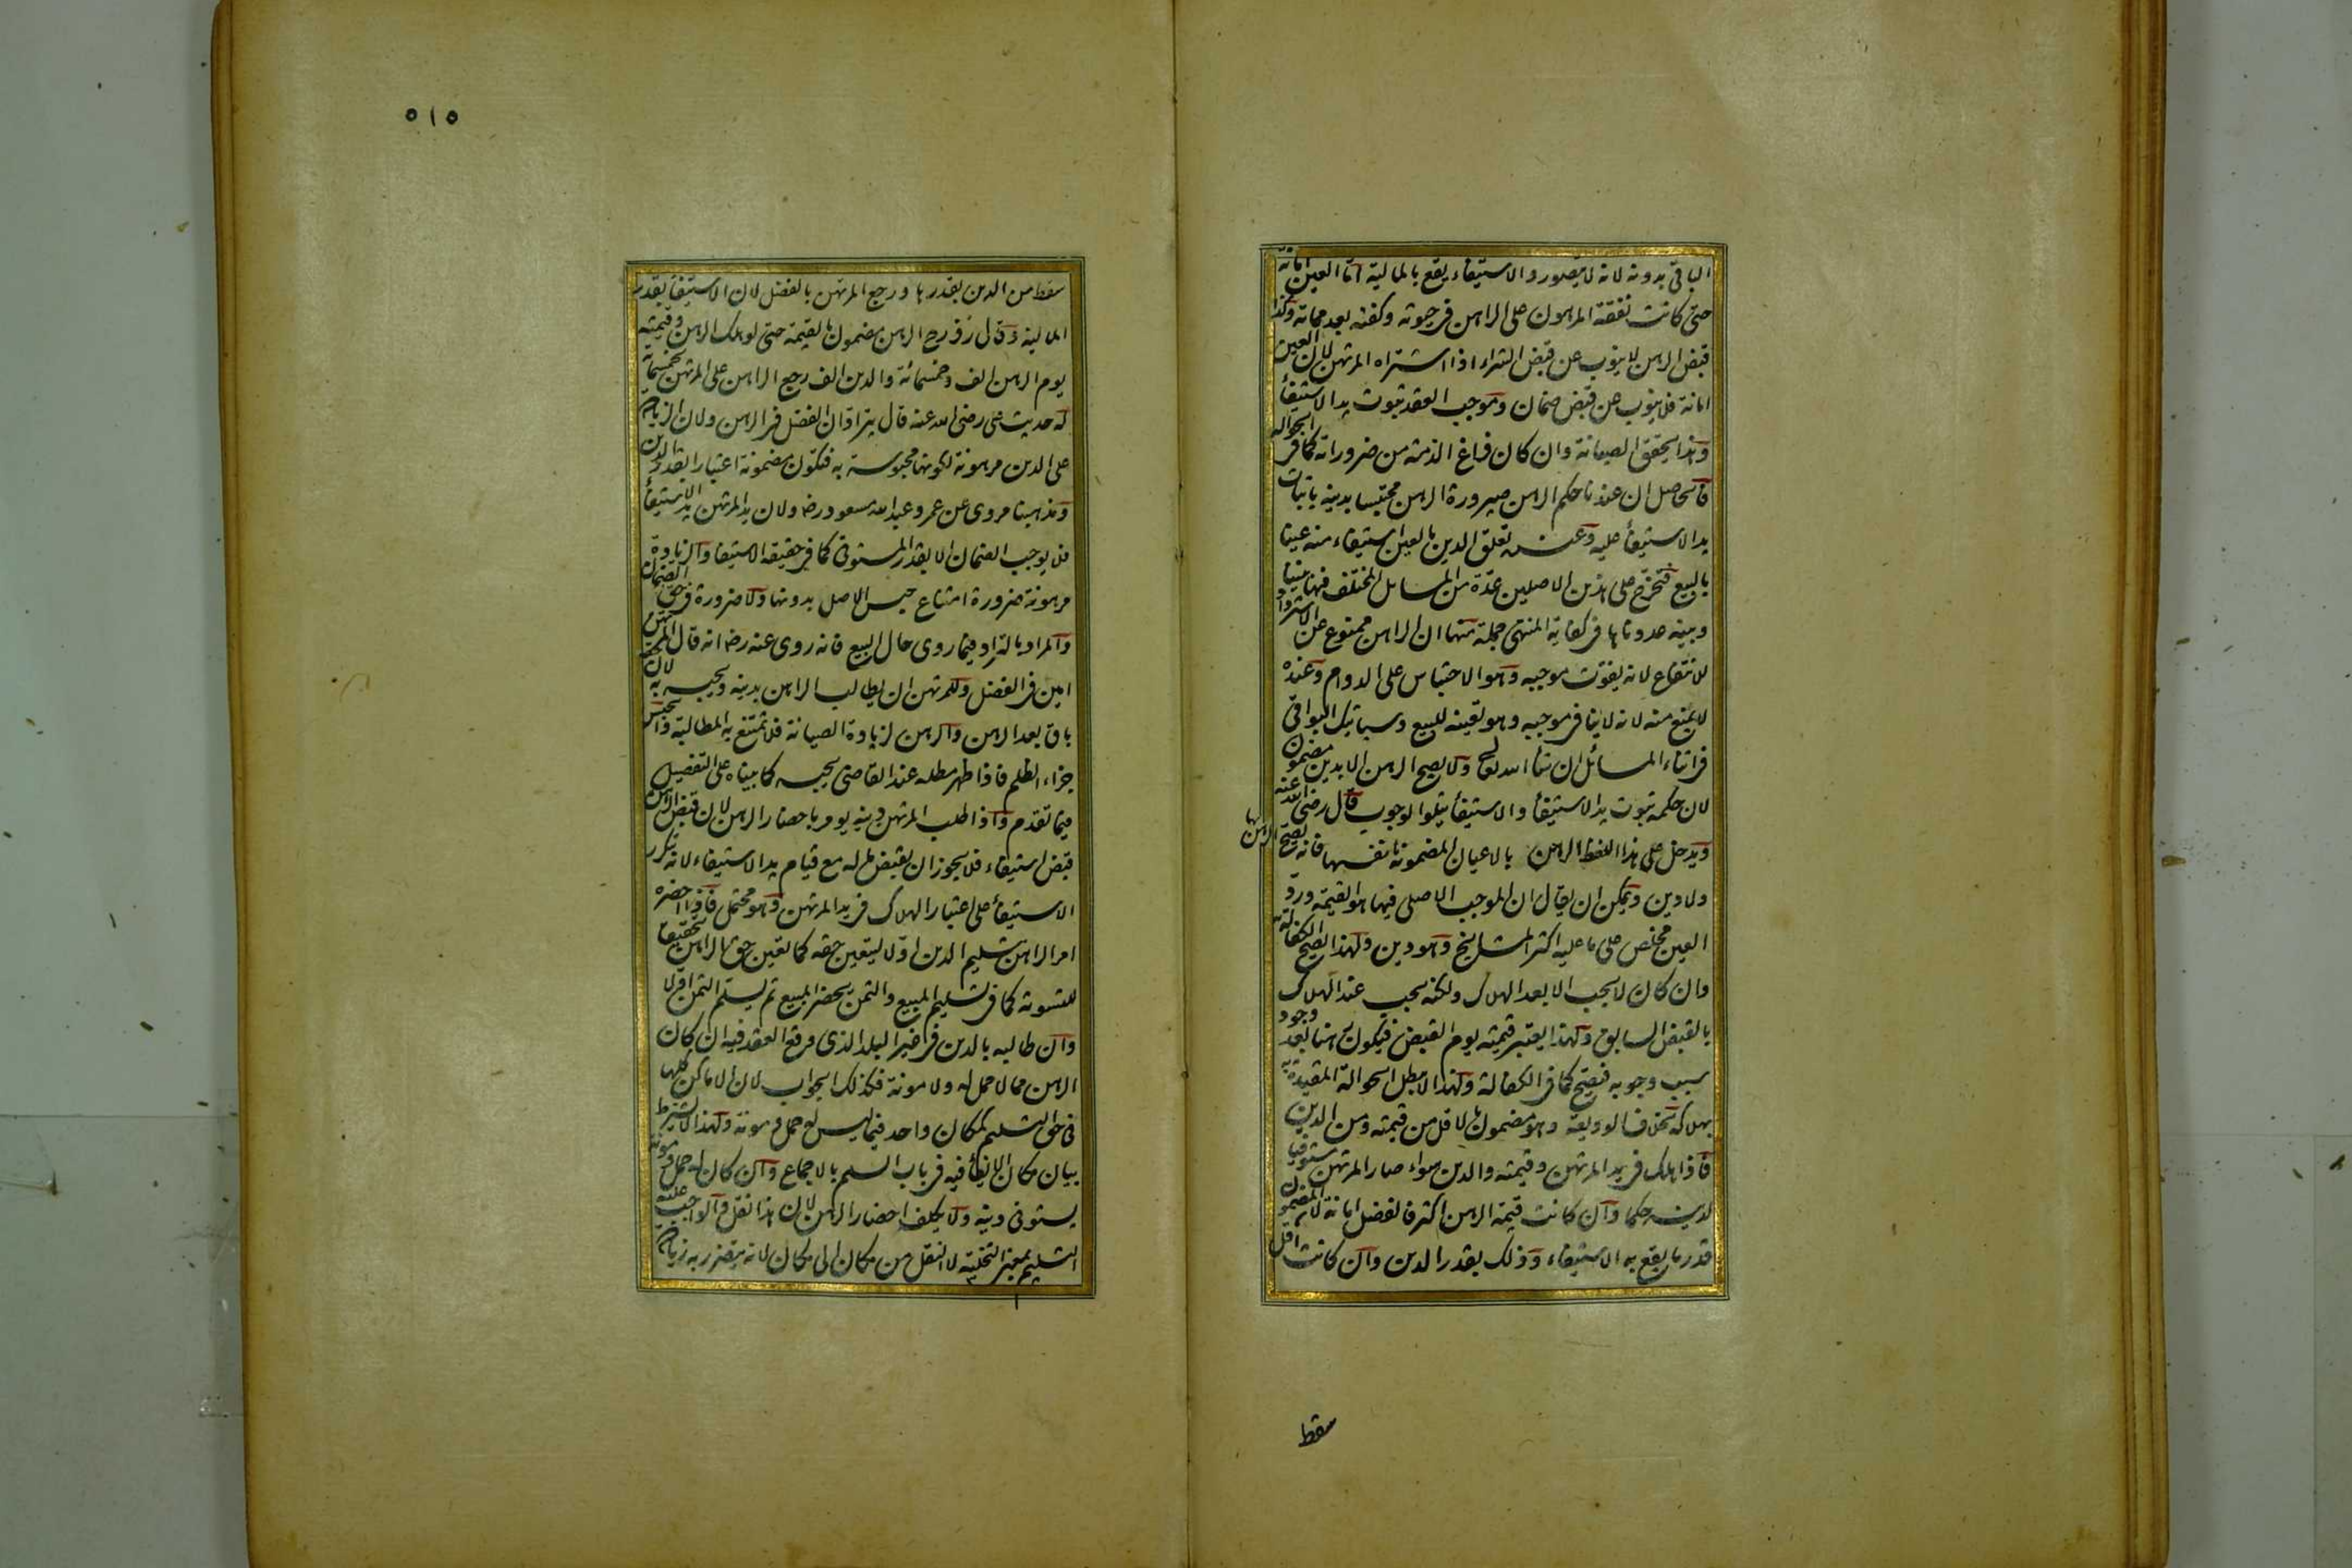 الباقى بدونه لانه لا يتصور والاستيفاء يقع بالمالية اما العين امانة
حتى كانت نفقة المرهون على الراهن فى حيوته وكفنه بعد مماته وكذا
قبض الرهن لا ينوب عن قبض الشراء اذا اشتراه المرتهن لان العين
امانة فلا ينوب عن قبض ضمان وموجب العقد ثبوت يد الاستيفأ
وهذا يحقق الصيانة وان كان فراغ الذمة من ضروراته كما فى الحوالة
فالحاصل ان عندنا حكم الرهن صيرورة الرهن محتبسا بدينه باثبات
يد الاستيفأ عليه وعنده تعلق الدين بالعين استيفاء منه عينا
بالبيع فتخرج على هذين الاصلين عدة من المسايل المختلف فيها بيننا
وبينه عددناها فى كفاية المنتهى جملة منها ان الراهن ممنوع عن الاسترداد
للانتفاع لانه يفوت موجبه وهو الاحتباس على الدوام وعنده
لا يمنع منه لانه لا ينافى موجبه وهو تعينه للبيع وسياتيك البواقى
فى اثناء المسائل ان شاء الله تعالى ولا يصح الرهن الا بدين مضمون
لان حكمه ثبوت يد الاستيفأ والاستيفأ يتلو الوجوب قال رضى الله عنه
ويدخل على هذا اللفظ الرهن بالاعيان المضمونة بانفسها فانه يصح الرهن بها
ولا دين ويمكن ان يقال ان الموجب الاصلى فيها هو القيمة ورد
العين مخلص على ما عليه اكثر المشايخ وهو دين ولهذا تصح الكفالة بها
وان كان لا يجب الا بعد الهلاك ولكنه يجب عند الهلاك
بالقبض السابق ولهذا يعتبر قيمته يوم القبض فيكون رهنا بعد وجود
سبب وجوبه فيصح كما فى الكفالة ولهذا لا تبطل الحوالة المقيدة به
بهلاكه بخلاف الوديعة وهو مضمون بالاقل من قيمته ومن الدين
فاذا هلك فى يد المرتهن وقيمته والدين سواء صار المرتهن مستوفيا
لدينه حكما وان كانت قيمة الرهن اكثر فالفضل امانة لان المضمون
قدر ما يقع به الاستيفاء وذلك بقدر الدين وان كانت اقل
سقط
٥١٥
سقط من الدين بقدرها ورجع المرتهن بالفضل لان الاستيفأ بقدر
المالية وقال زفر رح الرهن مضمون بالقيمة حتى لو هلك الرهن وقيمته
يوم الرهن الف وخمسمائة والدين الف رجع الراهن على المرتهن بخمسمائة
له حديث على رضى الله عنه قال يترادان الفضل فى الرهن ولان الزيادة
على الدين مرهونة لكونها محبوسة به فتكون مضمونة اعتبارا بقدر الدين
ومذهبنا مروى عن عمر وعبد الله مسعود رض ولان يد المرتهن يد الاستيفأ
فلا يوجب الضمان الا بقدر المستوفى كما فى حقيقة الاستيفا والزيادة
مرهونة ضرورة امتناع حبس الاصل بدونها ولا ضرورة فى حق الضمان
والمراد بالتراد فيما روى حال البيع فانه روى عنه رض انه قال المرتهن
امين فى الفضل وللمرتهن ان يطالب الراهن بدينه ويحبسه به لان حقه
باق بعد الرهن والرهن لزيادة الصيانة فلا تمتنع به المطالبة والحبس
جزاء الظلم فاذا ظهر مطله عند القاضى يحبسه كما بيناه على التفصيل
فيما تقدم واذا طلب المرتهن دينه يومر باحضار الرهن لان قبض الرهن
قبض استيفاء فلا يجوز ان يقبض ماله مع قيام يد الاستيفاء لانه يتكرر
الاستيفأ على اعتبار الهلاك فى يد المرتهن وهو محتمل فاذا احضره
امر الراهن بتسليم الدين اولا ليتعين حقه كما تعين حق الراهن تحقيقا
للتسوية كما فى تسليم المبيع والثمن يحضر المبيع ثم يسلم الثمن اولا
وان طالبه بالدين فى غير البلد الذى وقع العقد فيه ان كان
الرهن مما لا حمل له ولا مونة فكذلك الجواب لان الاماكن كلها
فى حق التسليم كمكان واحد فيما ليس له حمل ومونة ولهذا لا يشترط
بيان مكان الايفأ فيه فى باب السلم بالاجماع وان كان له حمل ومونة
يستوفى دينه ولا يكلف احضار الرهن لان هذا نقل والواجب عليه
التسليم بمعنى التخلية لا النقل من مكان الى مكان لانه يتضرر به زيادة